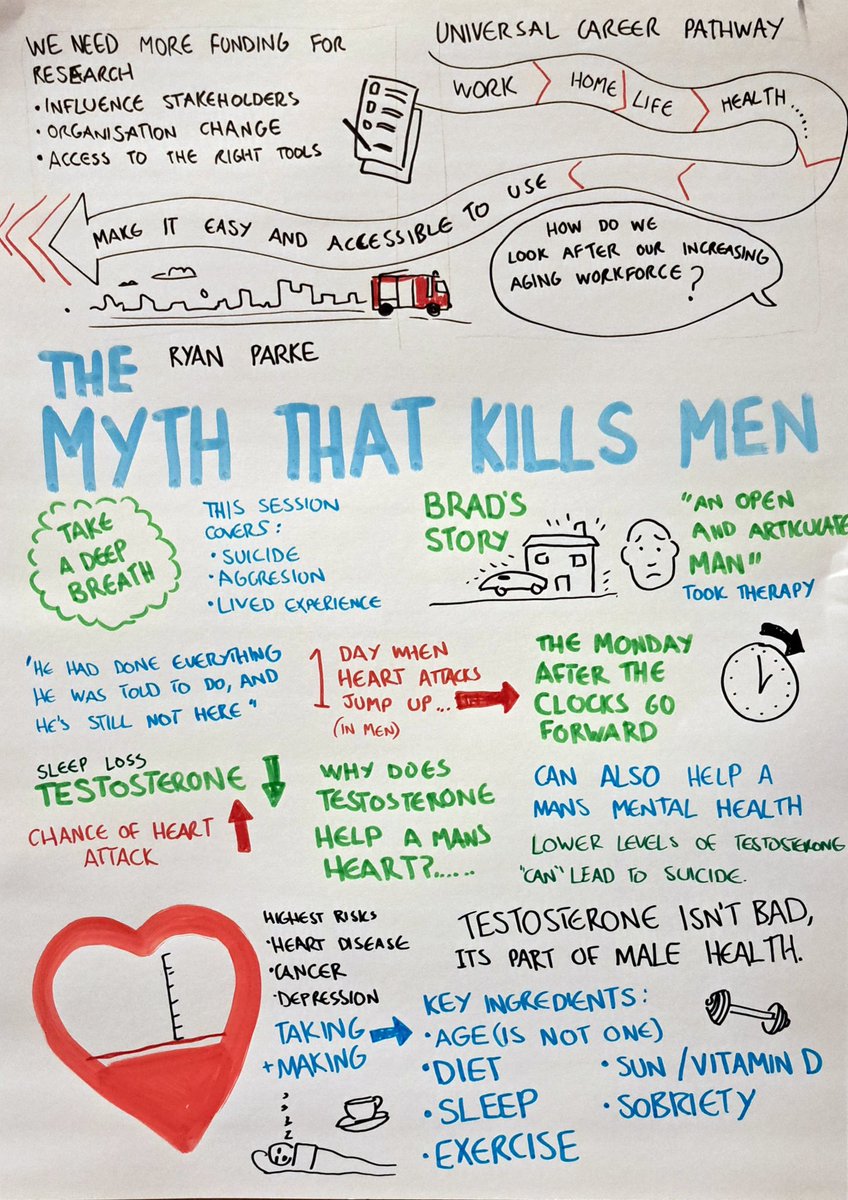 WE NEED MORE FUNDING FOR
RESEARCH
• INFLUENCE STAKEHOLDERS
• ORGANISATION CHANGE
• ACCESS TO THE RIGHT TOOLS
UNIVERSAL CAREER PATHWAY
WORK HOME LIFE HEALTH......
MAKE IT EASY AND ACCESSIBLE TO USE
HOW DO WE
LOOK AFTER OUR INCREASING
AGING WORKFORCE?
RYAN PARKE
THE
MYTH THAT KILLS MEN
TAKE
A DEEP
BREATH
THIS SESSION
COVERS:
• SUICIDE
• AGGRESION
• LIVED EXPERIENCE
BRAD'S
STORY
"AN OPEN
AND ARTICULATE
MAN"
TOOK THERAPY
"HE HAD DONE EVERYTHING
HE WAS TOLD TO DO, AND
HE'S STILL NOT HERE"
1 DAY WHEN
HEART ATTACKS
JUMP UP...
(IN MEN)
THE MONDAY
AFTER THE
CLOCKS GO
FORWARD
SLEEP LOSS
TESTOSTERONE
CHANCE OF HEART
ATTACK
WHY DOES
TESTOSTERONE
HELP A MANS
HEART?......
CAN ALSO HELP A
MANS MENTAL HEALTH
LOWER LEVELS OF TESTOSTERONE
"CAN" LEAD TO SUICIDE.
HIGHEST RISKS
• HEART DISEASE
• CANCER
• DEPRESSION
TESTOSTERONE ISN'T BAD,
ITS PART OF MALE HEALTH.
TAKING
+ MAKING
KEY INGREDIENTS:
• AGE (IS NOT ONE)
• DIET
• SLEEP
• EXERCISE
• SUN / VITAMIN D
• SOBRIETY
z z z z